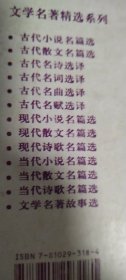 文学名著精选系列
• 古代小说名篇选
• 古代散文名篇选
• 古代名诗选译
• 古代名词选译
• 古代名曲选译
• 古代名赋选译
• 现代小说名篇选
• 现代散文名篇选
• 现代诗歌名篇选
• 当代小说名篇选
• 当代散文名篇选
• 当代诗歌名篇选
• 文学名著故事选
ISBN 7-81029-318-4